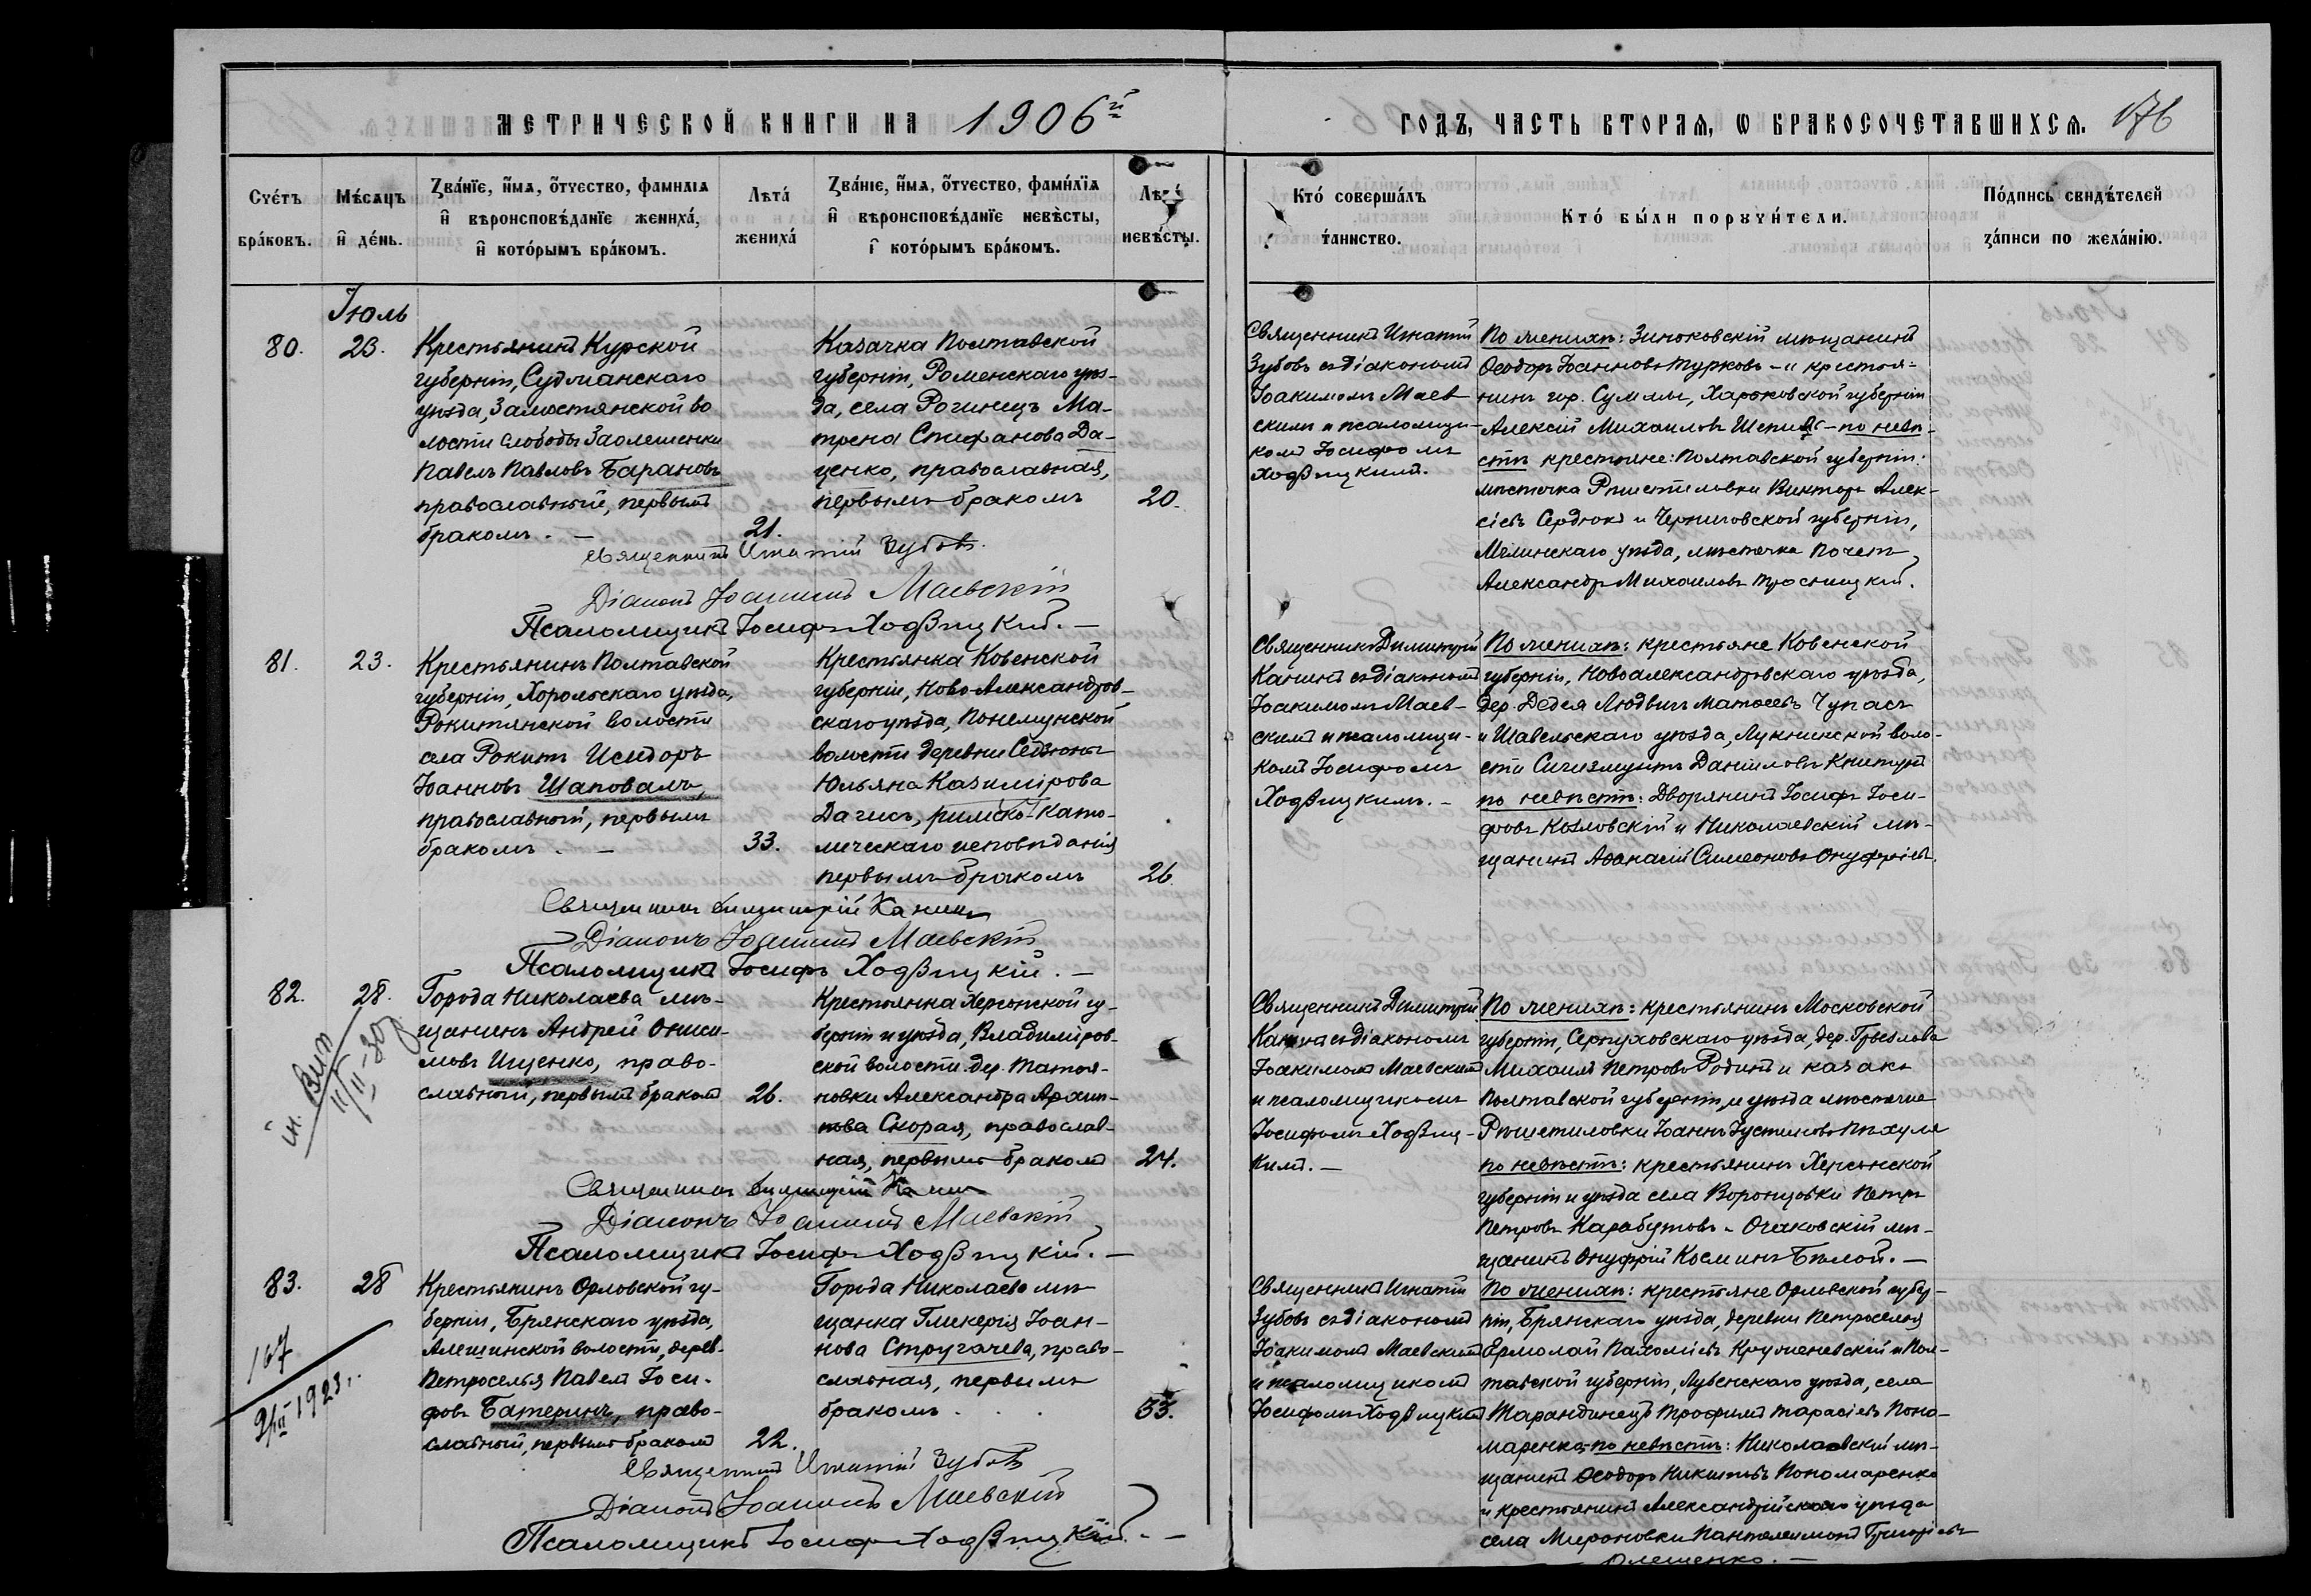 МЕТРИЧЕСКОЙ КНИГИ НА 1906й
ГОДЪ, ЧАСТЬ ВТОРАЯ, Ѡ БРАКОСОЧЕТАВШИХСЯ. 176
Сче́тъ бра́ковъ.
Мѣ́сяцъ и҆ де́нь.
Зва́нїе, и҆́мя, ѻ҆́тчество, фамилїя
и҆ вѣроисповѣ́данїе жениха́,
и҆ кото́рымъ бра́комъ.
Лѣта́
жениха́
Зва́нїе, и҆́мя, ѻ҆́тчество, фами́лїя
и҆ вѣроисповѣ́данїе невѣ́сты,
і҆ кото́рымъ бра́комъ.
Лѣта́
невѣ́сты.
Кто́ соверша́лъ
та́инство.
Кто́ бы́ли порꙋчи́тели.
По́дпись свидѣ́телей
за́писи по жела́нїю.
Іюль
80.
23.
Крестьянинъ Курской
губерніи, Суджанскаго
уѣзда, Замостянской во
лости слободы Заолешенки
Павелъ Павловъ Барановъ
православный, первымъ
бракомъ. —
21.
Казачка Полтавской
губерніи, Роменскаго уѣз-
да, села Рогинецъ Ма-
трона Стефанова Да-
ценко, православная,
первымъ бракомъ
20.
Священникъ Игнатій
Зубовъ съ діакономъ
Іоакимомъ Маев
скимъ и псаломщи-
комъ Іосифомъ
Ходзицкимъ.
По женихѣ: Зиньковскій мѣщанинъ
Ѳеодоръ Іоанновъ Турковъ – и крестья-
нинъ гор. Сумъ, Харьковской губерніи
Алексій Михаиловъ – по невѣ-
стѣ крестьяне: Полтавской губерніи:
мѣстечка Рѣшетиловки Викторъ Алек-
сіевъ Сердюкъ и Черниговской губерніи,
Мглинскаго уѣзда, мѣстечка Почепъ
Александръ Михаиловъ
Священникъ Игнатій Зубовъ.
Діаконъ Іоакимъ Маевскій
Псаломщикъ Іосифъ Ходзицкій. —
81.
23.
Крестьянинъ Полтавской
губерніи, Хорольскаго уѣзда,
Рокитянской волости
села Рокитъ Исидоръ
Іоанновъ Шаповалъ,
православный, первымъ
бракомъ . —
33.
Крестьянка Ковенской
губерніи, Ново-Александров-
скаго уѣзда, Понемунской
волости деревни
Юльяна Казимірова
Дагисъ, римско-като-
лическаго исповѣданія
первымъ бракомъ
26.
Священникъ Димитрій
Канинъ съ діакономъ
Іоакимомъ Маев-
скимъ и псаломщи-
комъ Іосифомъ
Ходзицкимъ. –
По женихѣ: крестьяне Ковенской
губерніи, Новоалександровскаго уѣзда,
дер. Дедея Людвигъ Матѳеевъ Чупасъ
и Шавельскаго уѣзда, Лукникской воло-
сти Сигизмундъ Даниловъ
по невѣстѣ: Дворянинъ Іосифъ Іоси-
фовъ Козловскій и Николаевскій мѣ-
щанинъ Аѳанасій Симеоновъ Онуфріевъ.
Священникъ Димитрій Канинъ
Діаконъ Іоакимъ Маевскій
Псаломщикъ Іосифъ Ходзицкій. —
82.
28.
Города Николаева мѣ-
щанинъ Андрей Ониси-
мовъ Ищенко, право-
славный, первымъ бракомъ
26.
Крестьянка Херсонской гу-
берніи и уѣзда, Владиміров-
ской волости дер. Татья-
новки Александра Архип-
пова Скорая, православ-
ная, первымъ бракомъ
24.
Священникъ Димитрій
Канинъ съ діакономъ
Іоакимомъ Маевскимъ
и псаломщикомъ
Іосифомъ Ходзиц-
кимъ. —
По женихѣ: крестьянинъ Московской
губерніи, Серпуховскаго уѣзда, дер.
Михаилъ Петровъ Родинъ и казакъ
Полтавской губерніи, и уѣзда мѣстечка
Рѣшетиловки Іоаннъ Іустиновъ
по невѣстѣ: крестьянинъ Херсонской
губерніи и уѣзда села Воронцовки Петръ
Петровъ Карабутовъ и Очаковскій мѣ-
щанинъ Онуфрій Косминъ Бѣлой. —
Священникъ Димитрій Канинъ
Діаконъ Іоакимъ Маевскій
Псаломщикъ Іосифъ Ходзицкій. —
83.
28
167
1923 г.
Крестьянинъ Орловской гу-
берніи, Брянскаго уѣзда,
Алешинской волости, дерев.
Петроселья Павелъ Іоси-
фовъ Батеринъ, право-
славный, первымъ бракомъ
22.
Города Николаева мѣ-
щанка Гликерія Іоан-
нова Стругачева, право-
славная, первымъ
бракомъ . . .
Священникъ Игнатій
Зубовъ съ діакономъ
Іоакимомъ Маевскимъ
и псаломщикомъ
Іосифомъ Ходзицкимъ
По женихѣ: крестьяне Орловской губер-
ніи, Брянскаго уѣзда, деревни Петроселья
Ермолай Пахоміевъ Кружневскій и Пол-
тавской губерніи, Лубенскаго уѣзда, села
Тарандинецъ Трофимъ Тарасіевъ Поно-
маренко; по невѣстѣ: Николаевскій мѣ-
щанинъ Ѳеодоръ Никитовъ Пономаренко
и крестьянинъ Александрійскаго уѣзда
села Мироновки Пантелеимонъ Григоріевъ
Олешенко. —
Священникъ Игнатій Зубовъ
Діаконъ Іоакимъ Маевскій
Псаломщикъ Іосифъ Ходзицкій. —